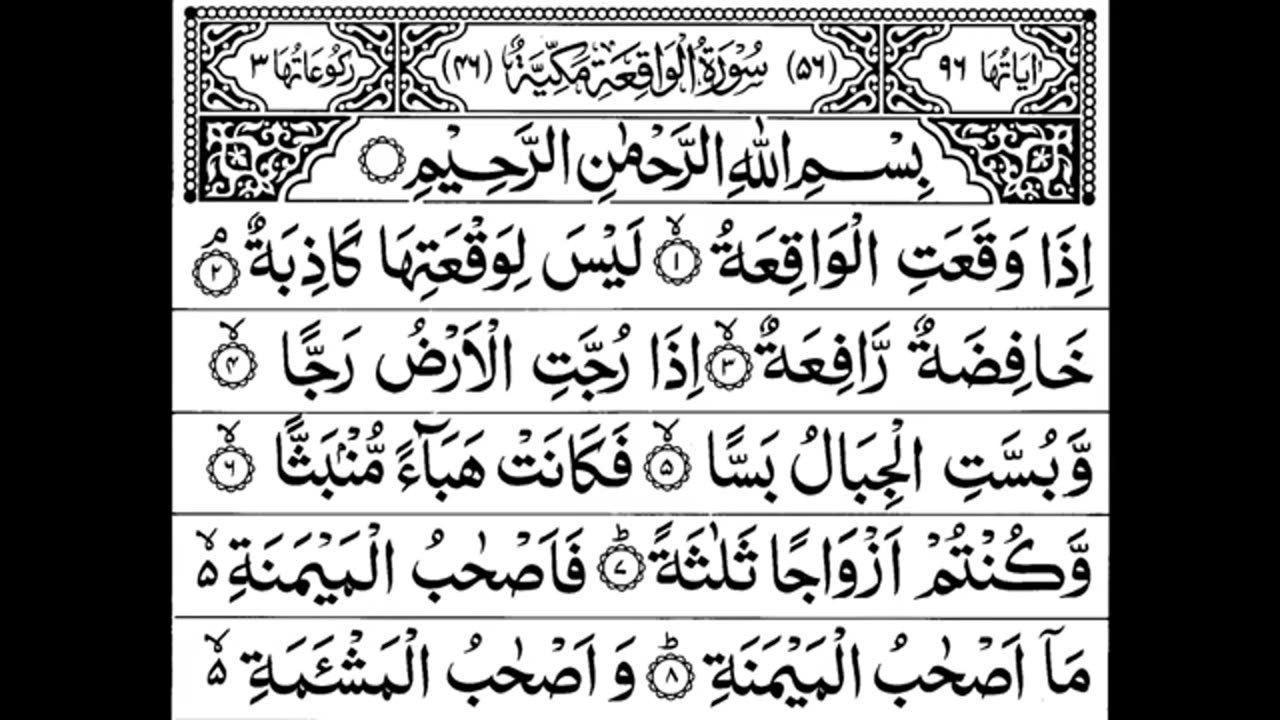 اٰیَاتُهَا ۹۶ (۵۶) سُوْرَةُ الْوَاقِعَةِ مَكِّیَّةٌ (۴۶) رُكُوْعَاتُهَا ۳
بِسْمِ اللّٰهِ الرَّحْمٰنِ الرَّحِیْمِ
اِذَا وَقَعَتِ الْوَاقِعَةُ ۙ﴿۱﴾ لَیْسَ لِوَقْعَتِهَا كَاذِبَةٌ ۘ﴿۲﴾
خَافِضَةٌ رَّافِعَةٌ ۙ﴿۳﴾ اِذَا رُجَّتِ الْاَرْضُ رَجًّا ۙ﴿۴﴾
وَّ بُسَّتِ الْجِبَالُ بَسًّا ۙ﴿۵﴾ فَكَانَتْ هَبَآءً مُّنْۢبَثًّا ۙ﴿۶﴾
وَّ كُنْتُمْ اَزْوَاجًا ثَلٰثَةً ؕ﴿۷﴾ فَاَصْحٰبُ الْمَیْمَنَةِ ۙ۵
مَاۤ اَصْحٰبُ الْمَیْمَنَةِ ؕ﴿۸﴾ وَ اَصْحٰبُ الْمَشْـَٔمَةِ ۙ۵